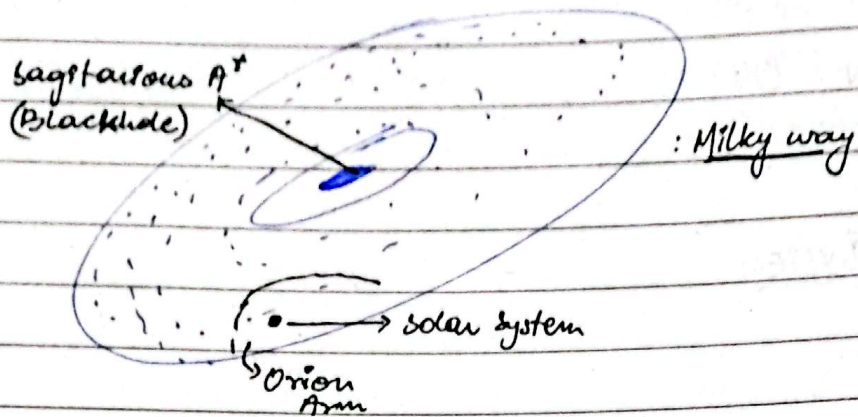 Sagitarious A*
(Blackhole)
: Milky way
Solar System
Orion
Arm